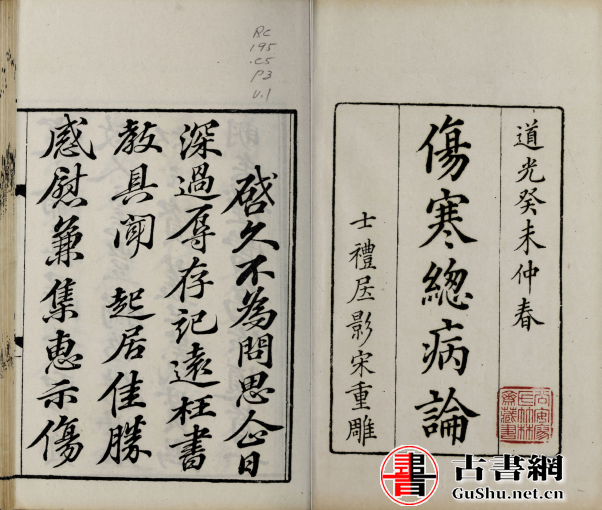 道光癸未仲春
傷寒總病論
士禮居影宋重雕
啓久不為問思企日
深過辱存記遠枉書
敎具聞 起居佳勝
感慰兼集惠示傷
RC
195
.C5
P3
V.1
書 古書網
GuShu.net.cn